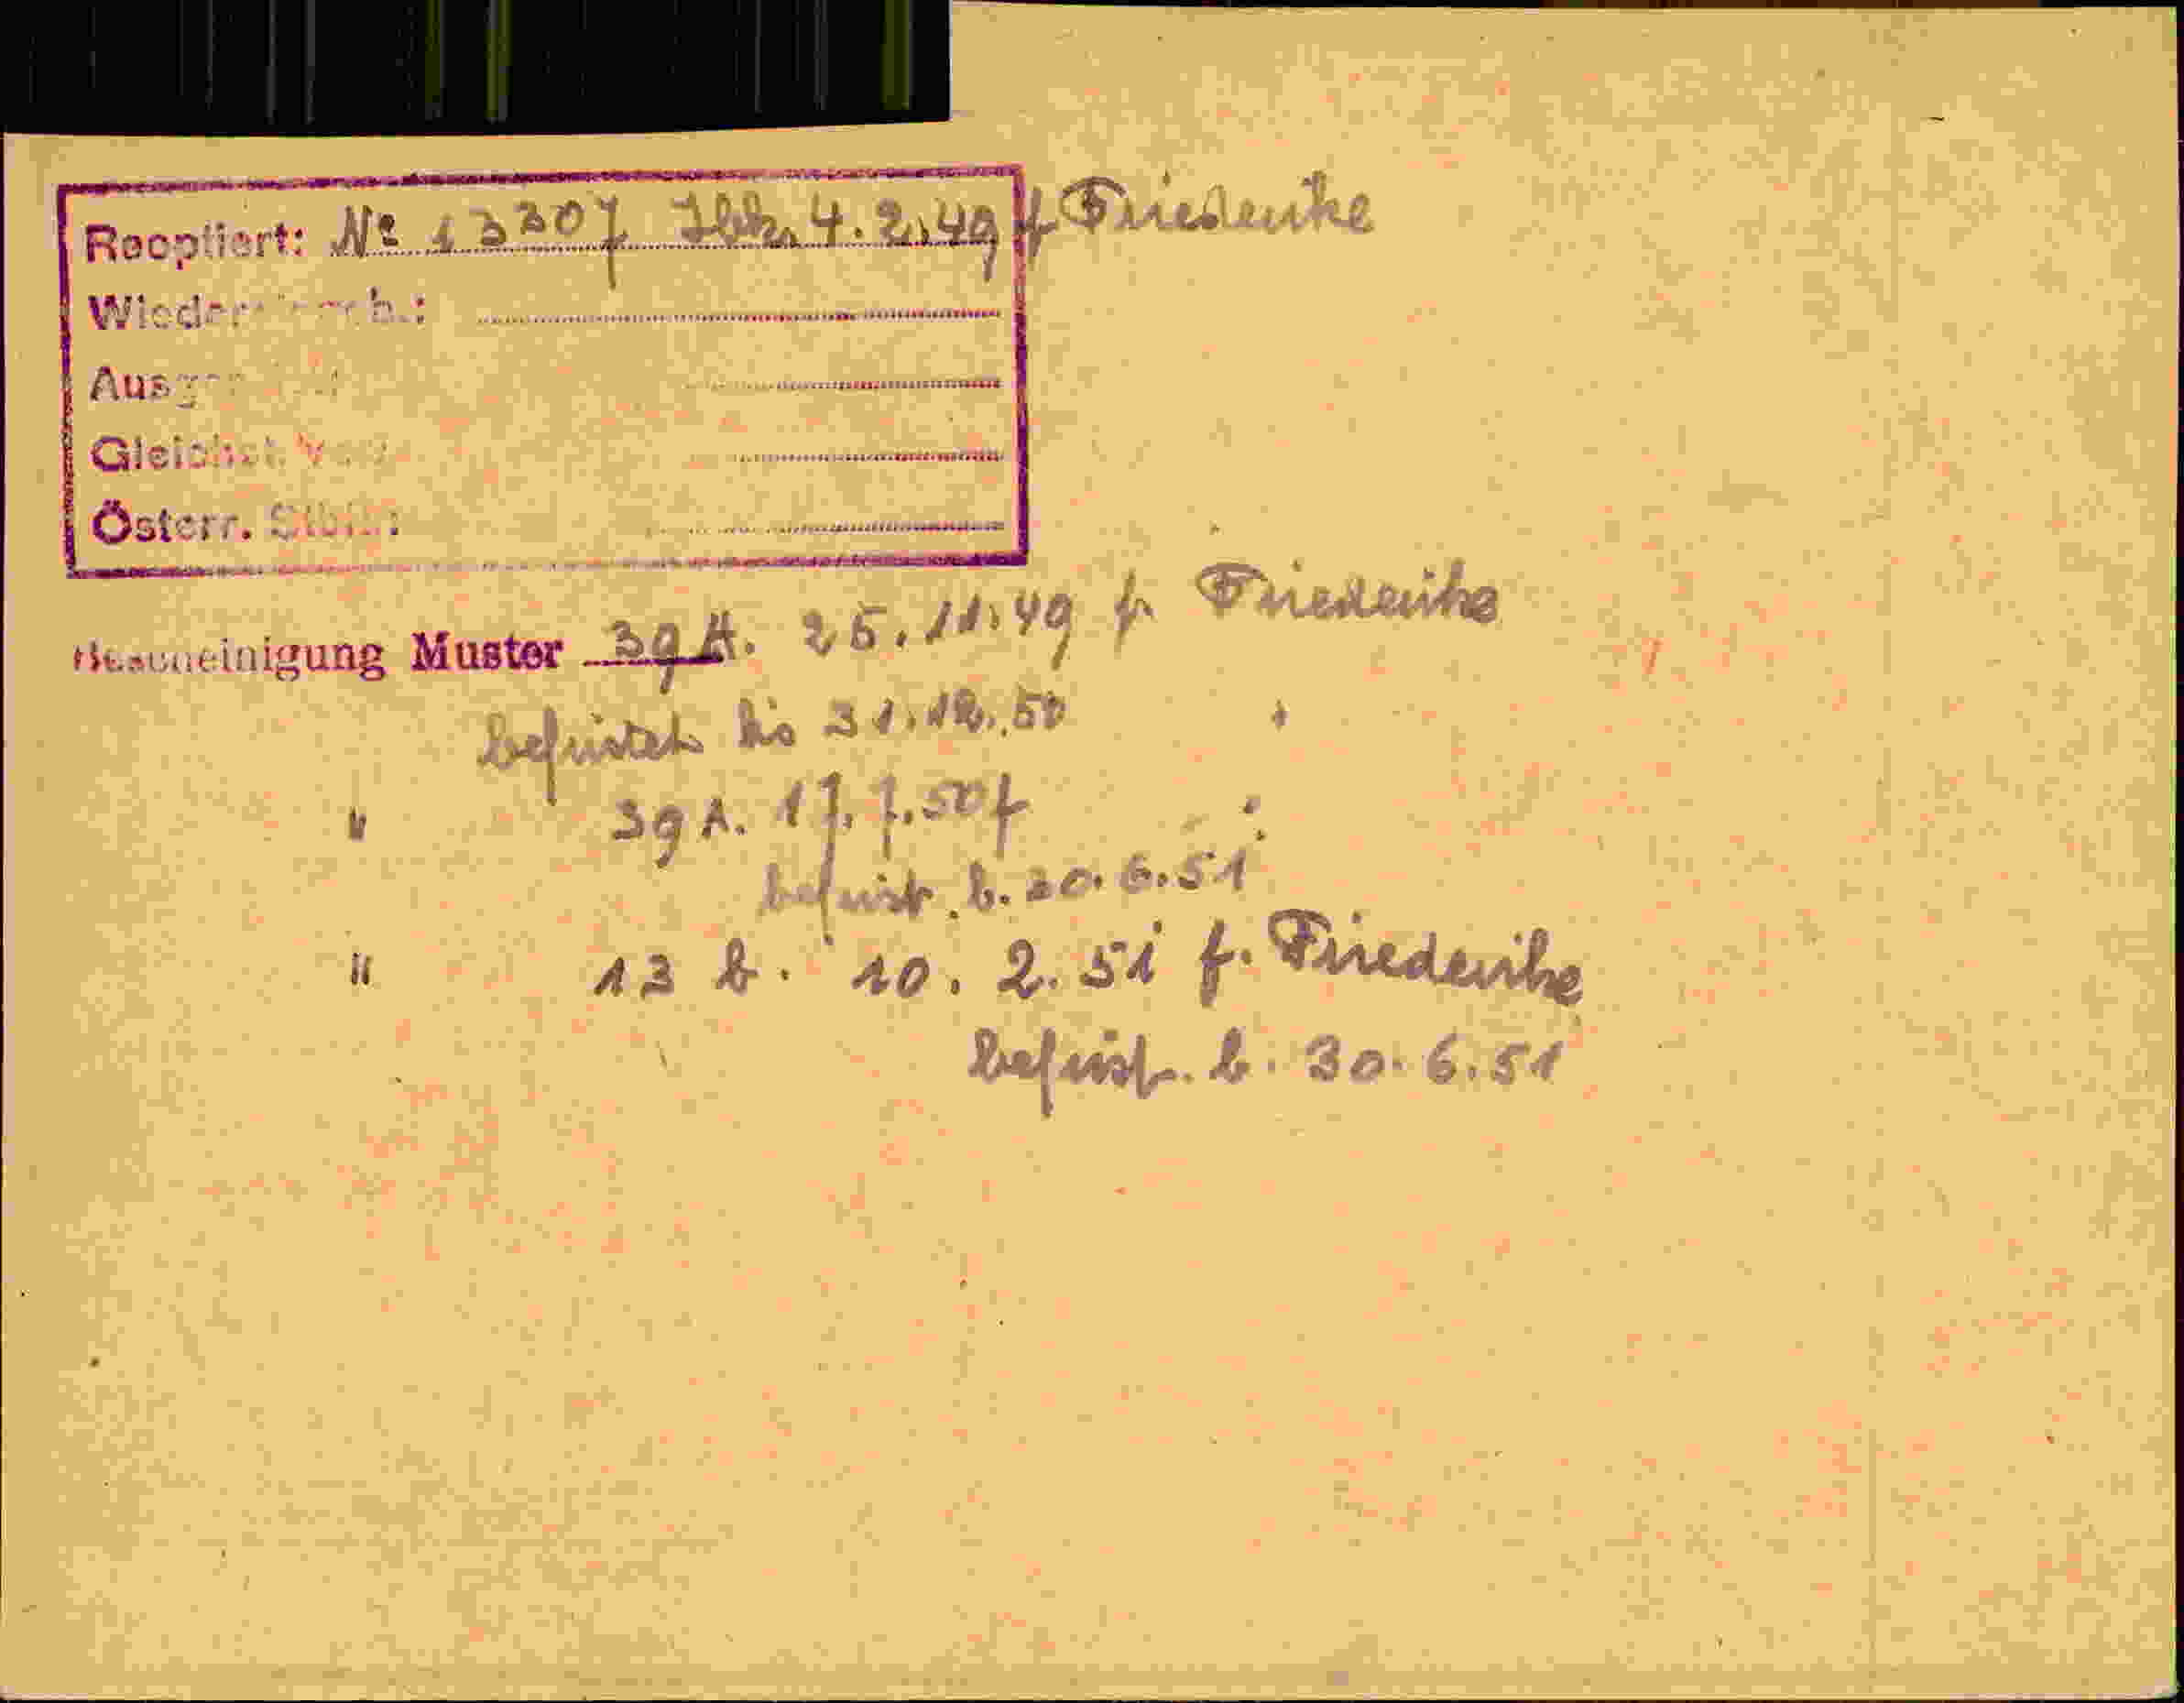 Reoptiert: № 13307 Ibk. 4.2.49 f. Friederike
Österr.
Bescheinigung Muster 39 A. 25.11.49 f. Friederike
befristet bis 31.12.50
" 39 A. 17.7.50 f
befrist. b. 30.6.51
" 13 b. 10.2.51 f. Friederike
befrist. b. 30.6.51